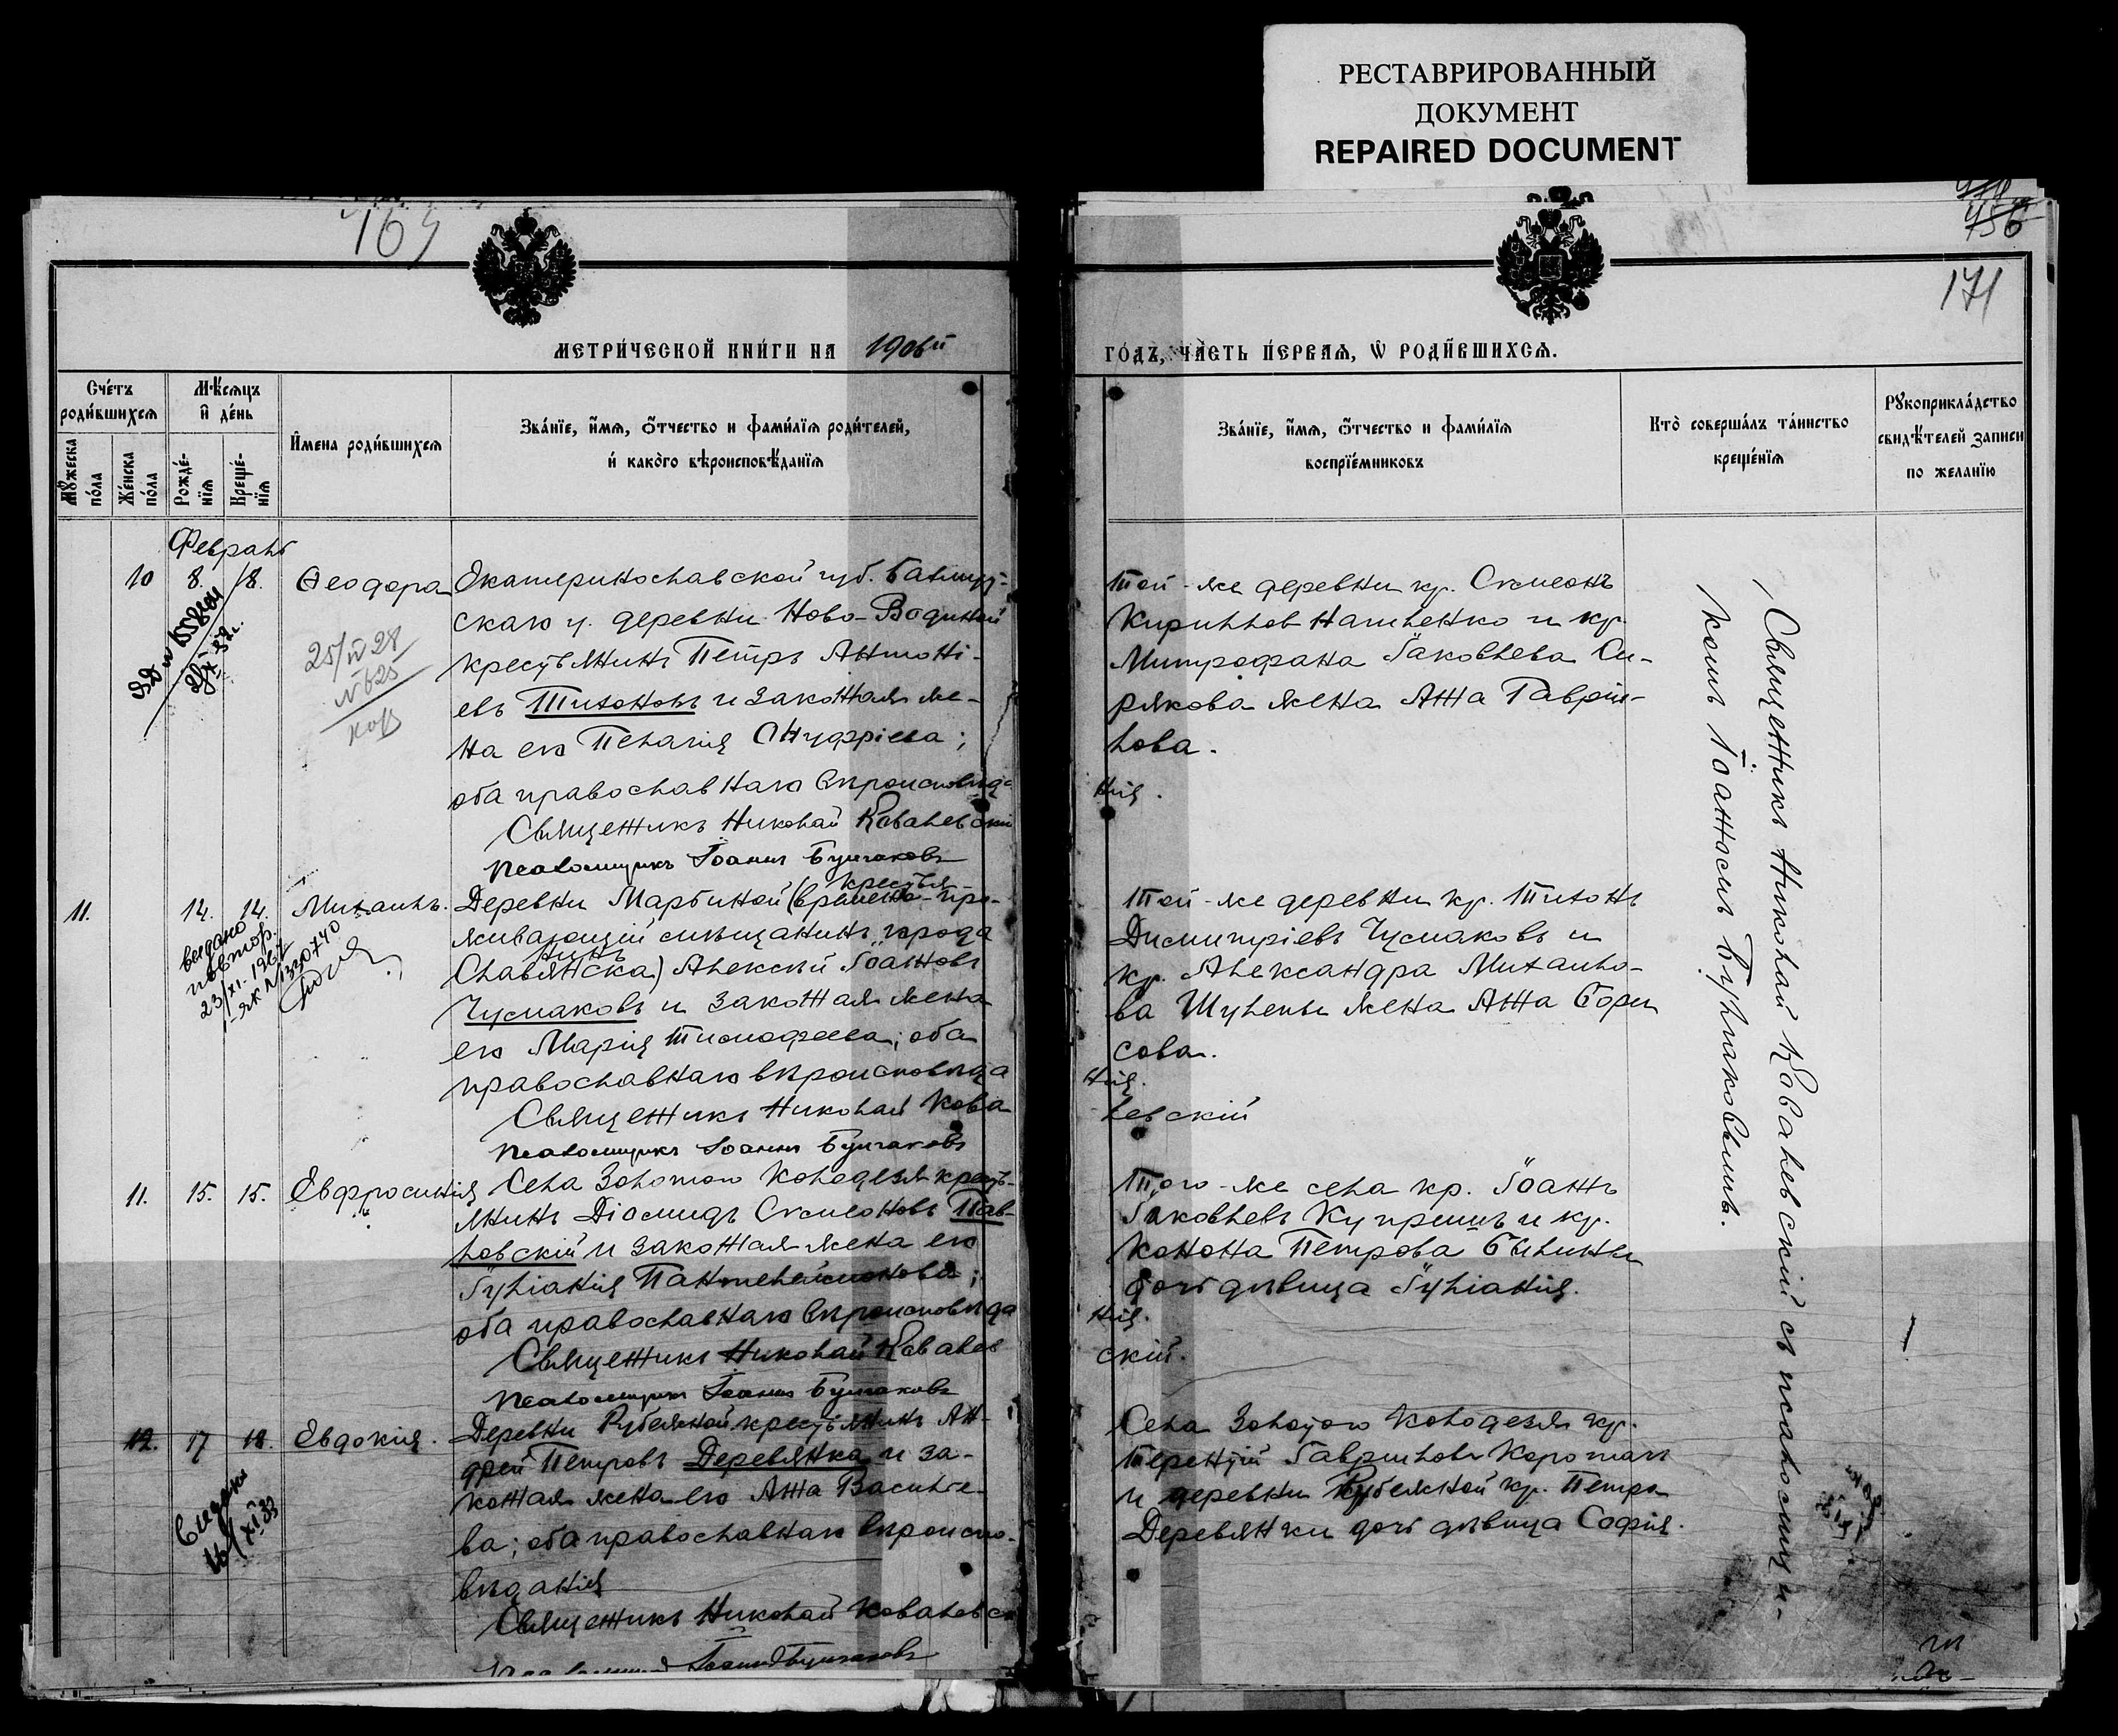 РЕСТАВРИРОВАННЫЙ
ДОКУМЕНТ
REPAIRED DOCUMENT
456
171
МЕТРИ́ЧЕСКОЙ КНИ́ГИ НА 1906й
ГО́ДЪ, ЧА́СТЬ ПЕ́РВАЯ, Ѡ РОДИ́ВШИХСЯ.
Сче́тъ роди́вшихся
Мꙋ́жеска по́ла
Же́нска по́ла
Мѣ́сяцъ и҆ де́нь
Рожде́-нїя
Креще́-нїя
И҆мена роди́вшихся
Зва́нїе, и҆́мя, ѻ҆́тчество и фами́лїя роди́телей,
и҆ како́го вѣроисповѣ́данїя
Зва́нїе, и҆́мя, ѻ҆́тчество и фами́лїя
воспрїе́мниковъ
Кто̀ соверша́лъ та́инство
креще́нїя
Рꙋкоприкла́дство
свидѣ́телей записи
по желанїю
Февраль
10 8. 18. Ѳеодора
Екатеринославской губ. Бахмут-
скаго у. деревни Ново-Водяной
крестьянинъ Петръ Антоні-
евъ Тихоновъ и законная же-
на его Пелагія Онуфріева;
оба православнаго вѣроисповѣда-
Священникъ Николай Ковалевскій
Псаломщикъ Іоаннъ Булгаковъ
Той-же деревни кр. Симеонъ
Кирилловъ Нагиленко и кр.
Митрофана Іаковлева Си-
рякова жена Анна Гаврии-
лова.
нія.
25/IV 28
№ 625
11. 14. 14. Михаилъ.
выдано
повтор.
23/XI-1967
Деревни Марьиной (временно-про-
крестья-
живающій мѣщанинъ города
нинъ
Славянска) Алексій Іоанновъ
Чумаковъ и законная жена
его Марія Тимофеева; оба
православнаго вѣроисповѣда
Священникъ Николай Кова
Псаломщикъ Іоаннъ Булгаковъ
Той-же деревни кр. Тихонъ
Димитріевъ Чумаковъ и
кр. Александра Михаило-
ва Шулены жена Анна Бори
сова.
нія.
левскій
11. 15. 15. Евфросинія
Села Золотого Колодезя кресть-
янинъ Діомидъ Симеоновъ Пав-
ловскій и законная жена его
Іуліанія Пантелеймонова;
оба православнаго вѣроисповѣда
Священникъ Николай Ковалев
Псаломщикъ Іоаннъ Булгаковъ
Того-же села кр. Іоаннъ
Іаковлевъ Купришъ и кр.
Конона Петрова Былины
дочь дѣвица Іуліанія.
нія.
скій.
12. 17 18. Евдокія.
Выдано
16/XI 33
Деревни Рубежной крестьянинъ Ан-
дрей Петровъ Деревянка и за-
конная жена его Анна Василье-
ва; оба православнаго вѣроиспо-
вѣданія
Священникъ Николай Ковалевск
Іоаннъ Булгаковъ
Села Золотого Колодезя кр.
Терентій Гавриловъ Коротай
и деревни Рубежной кр. Петра
Деревянки дочь дѣвица Софія.
Священникъ Николай Ковалевскій съ псаломщи-
комъ Іоанномъ Булгаковымъ.